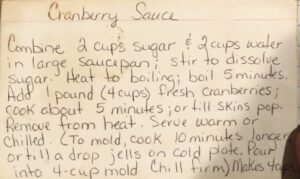 Cranberry Sauce
Combine 2 cups sugar & 2 cups water
in large saucepan; stir to dissolve
sugar. Heat to boiling; boil 5 minutes.
Add 1 pound (4 cups) fresh cranberries;
cook about 5 minutes, or till skins pop.
Remove from heat. Serve warm or
chilled. (To mold, cook 10 minutes longer
or till a drop jells on cold plate. Pour
into 4-cup mold Chill firm) Makes 4 cups